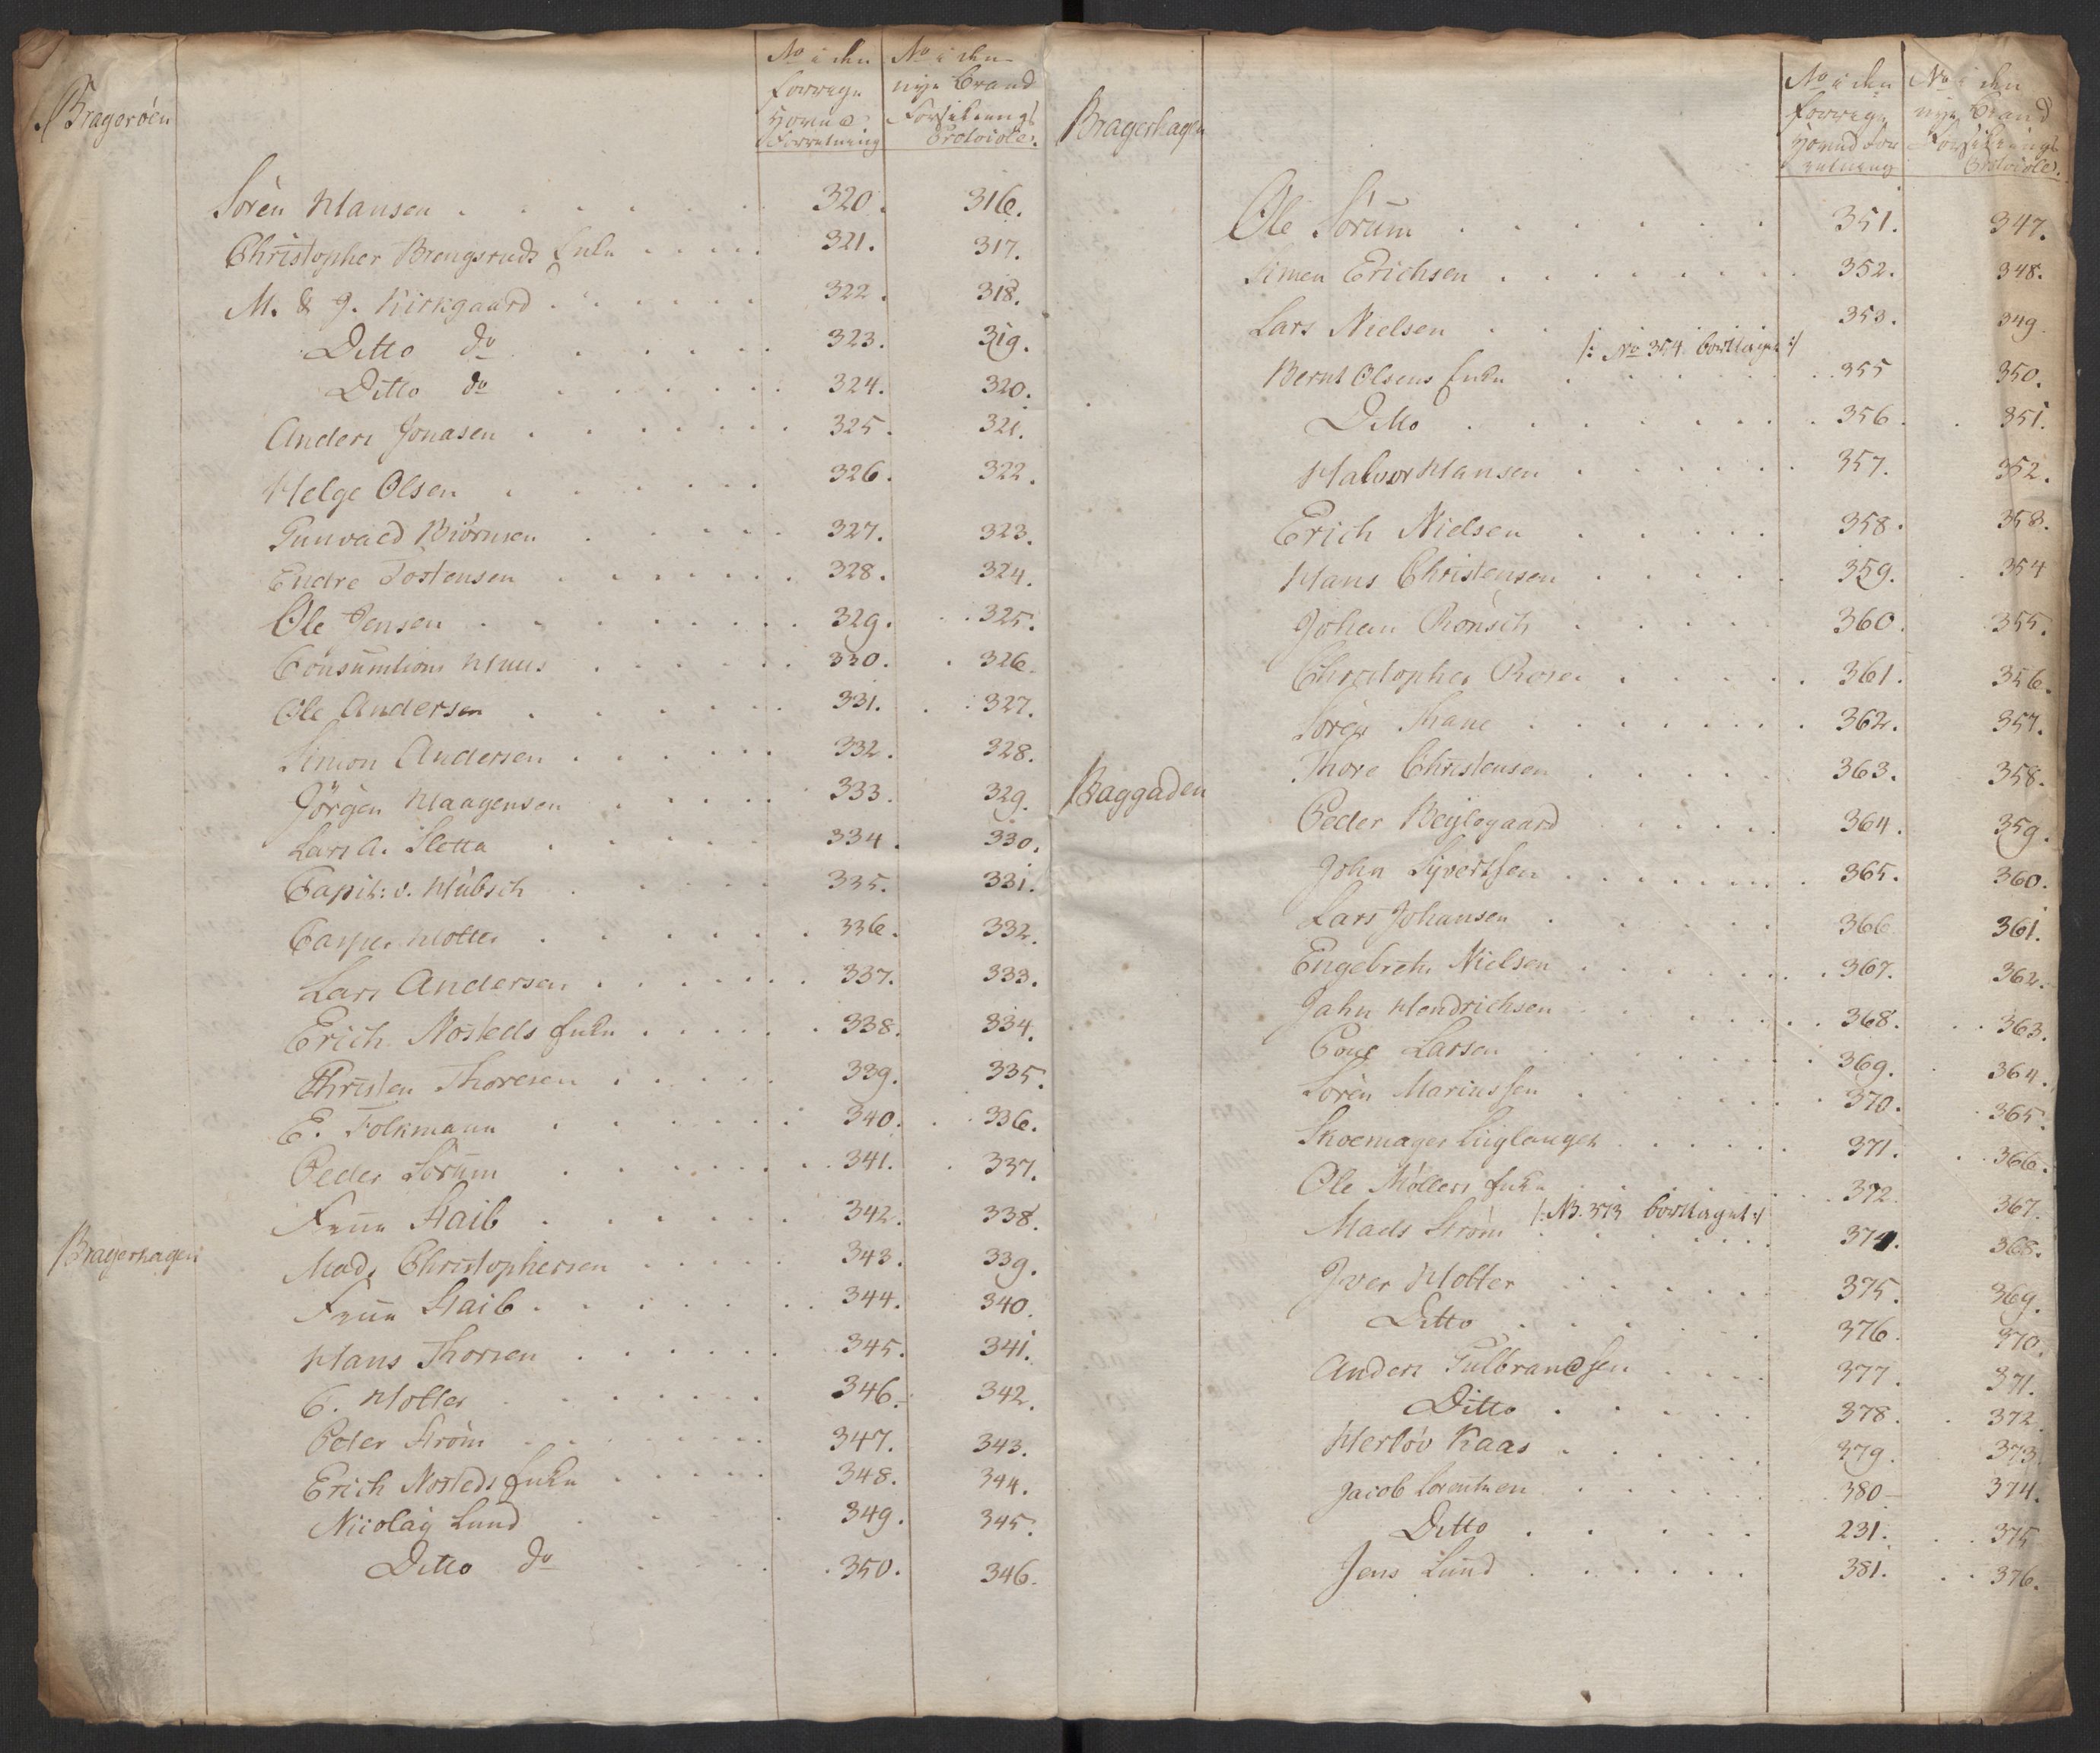 Bragerøen
No i den
forrige
Hoved
Forretning
No i den
nye Brand
Forsikrings
Protocoll.
Søren Hansen 320. 316.
Christopher Brengsruds Enke 321. 317.
M. & J. Kirkgaard 322. 318.
Ditto do 323. 319.
Ditto do 324. 320.
Anders Jonasen 325. 321.
Helge Olsen 326. 322.
Gunvald Biörnsen 327. 323.
Endre Tostensen 328. 324.
Ole Jensen 329. 325.
Consumtions Huus 330. 326.
Ole Andersen 331. 327.
Simon Andersen 332. 328.
Jörgen Haagensen 333. 329.
Lars A. Sletta 334. 330.
Capit: v. Hübsch 335. 331.
Casper Hotter 336. 332.
Lars Andersen 337. 333.
Erich Nosteds Enke 338. 334.
Christen Thoresen 339. 335.
E. Folkmann 340. 336.
Peder Sörum 341. 337.
Frue Haib 342. 338.
Bragerhagen
Mads Christophersen 343. 339.
Frue Haib 344. 340.
Hans Thorsen 345. 341.
C. Hotter 346. 342.
Peter Ström 347. 343.
Erich Nosteds Enke 348. 344.
Nicolay Lund 349. 345.
Ditto do 350. 346.
Bragerhagen
No i den
forrige
Hoved For
retning
No i den
nye Brand
Forsikrings
Protocoll.
Ole Sörum 351. 347.
Simen Erichsen 352. 348.
Lars Nielsen 353. 349.
/: No 354. borttaget :/
Bernt Olsens Enke 355 350.
Ditto 356. 351.
Halvor Hansen 357. 352.
Erich Nielsen 358. 353.
Hans Christensen 359. 354
Johan Rönsch 360. 355.
Christopher Rosei 361. 356.
Sören Thane 362. 357.
Thore Christensen 363. 358.
Baggaden
Peder Beylegaard 364. 359.
John Syvertsen 365. 360.
Lars Johansen 366 361.
Engebreth Nielsen 367. 362.
Jahn Hendrichsen 368. 363.
Poul Larsen 369. 364.
Sören Mariussen 370. 365.
Skoemager 371. 366.
Ole Møllers Enke 372. 367.
/: No. 373 borttaget :/
Mads Ström 374. 368.
Iver Hotter 375. 369.
Ditto 376. 370.
Anders Gulbrandsen 377. 371.
Ditto 378. 372.
Herlöv Kaas 379. 373
Jacob Lorentzen 380 374.
Ditto 231. 375
Jens Lund 381. 376.